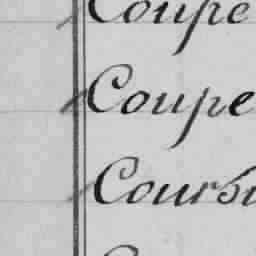 Coupe
Coupe
Cours